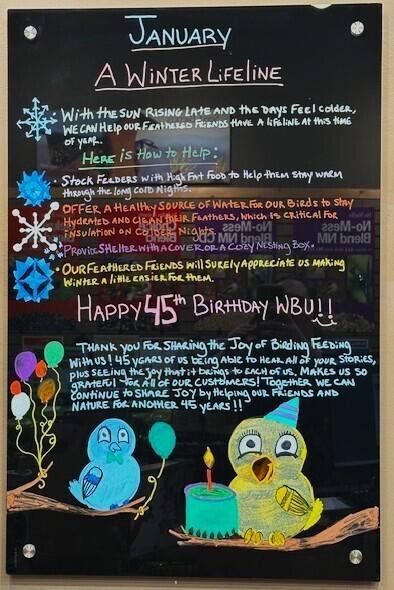 JANUARY
A WINTER LIFELINE
• WITH THE SUN RISING LATE AND THE DAYS FEEL COLDER,
WE CAN HELP OUR FEATHERED FRIENDS HAVE A LIFELINE AT THIS TIME
OF YEAR.
HERE is How to HELP:
• STOCK FEEDERS WITH HIGH FAT FOOD TO HELP THEM STAY WARM
THROUGH THE LONG COLD NIGHTS.
• OFFER A HEALTHY SOURCE OF WATER FOR OUR BIRDS TO STAY
HYDRATED AND CLEAN THEIR FEATHERS, WHICH IS CRITICAL FOR
INSULATION ON COLDER NIGHTS
• PROVIDE SHELTER WITH A COVER OR A COZY NESTING BOX.
• OUR FEATHERED FRIENDS WILL SURELY APPRECIATE US MAKING
WINTER A LITTLE EASIER FOR THEM.
HAPPY 45th BIRTHDAY WBU!!
THANK YOU FOR SHARING THE JOY OF BIRDING FEEDING
WITH US! 45 YEARS OF US BEING ABLE TO HEAR ALL OF YOUR STORIES,
PLUS SEEING THE JOY THAT IT BRINGS TO EACH OF US, MAKES US SO
GRATEFUL FOR ALL OF OUR CUSTOMERS! TOGETHER WE CAN
CONTINUE TO SHARE JOY BY HELPING OUR FRIENDS AND
NATURE FOR ANOTHER 45 YEARS!!